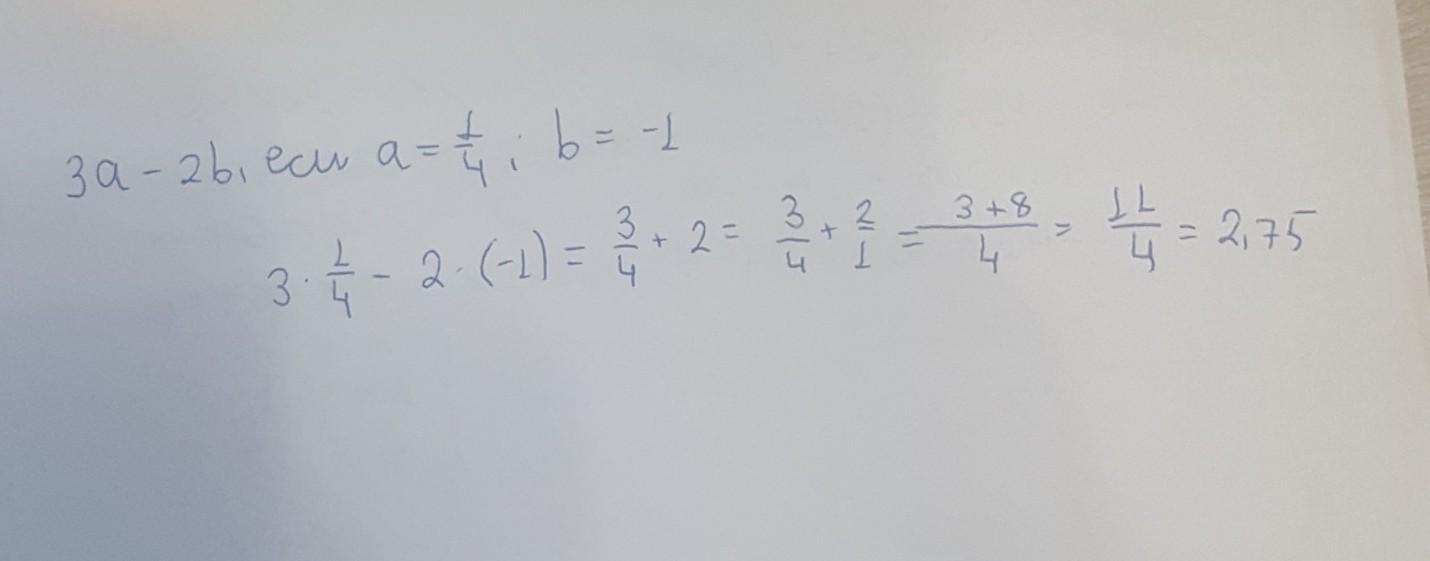 3a - 2b, если a = 1/4; b = -1
3 · 1/4 - 2 · (-1) = 3/4 + 2 = 3/4 + 2/1 = (3+8)/4 = 11/4 = 2,75